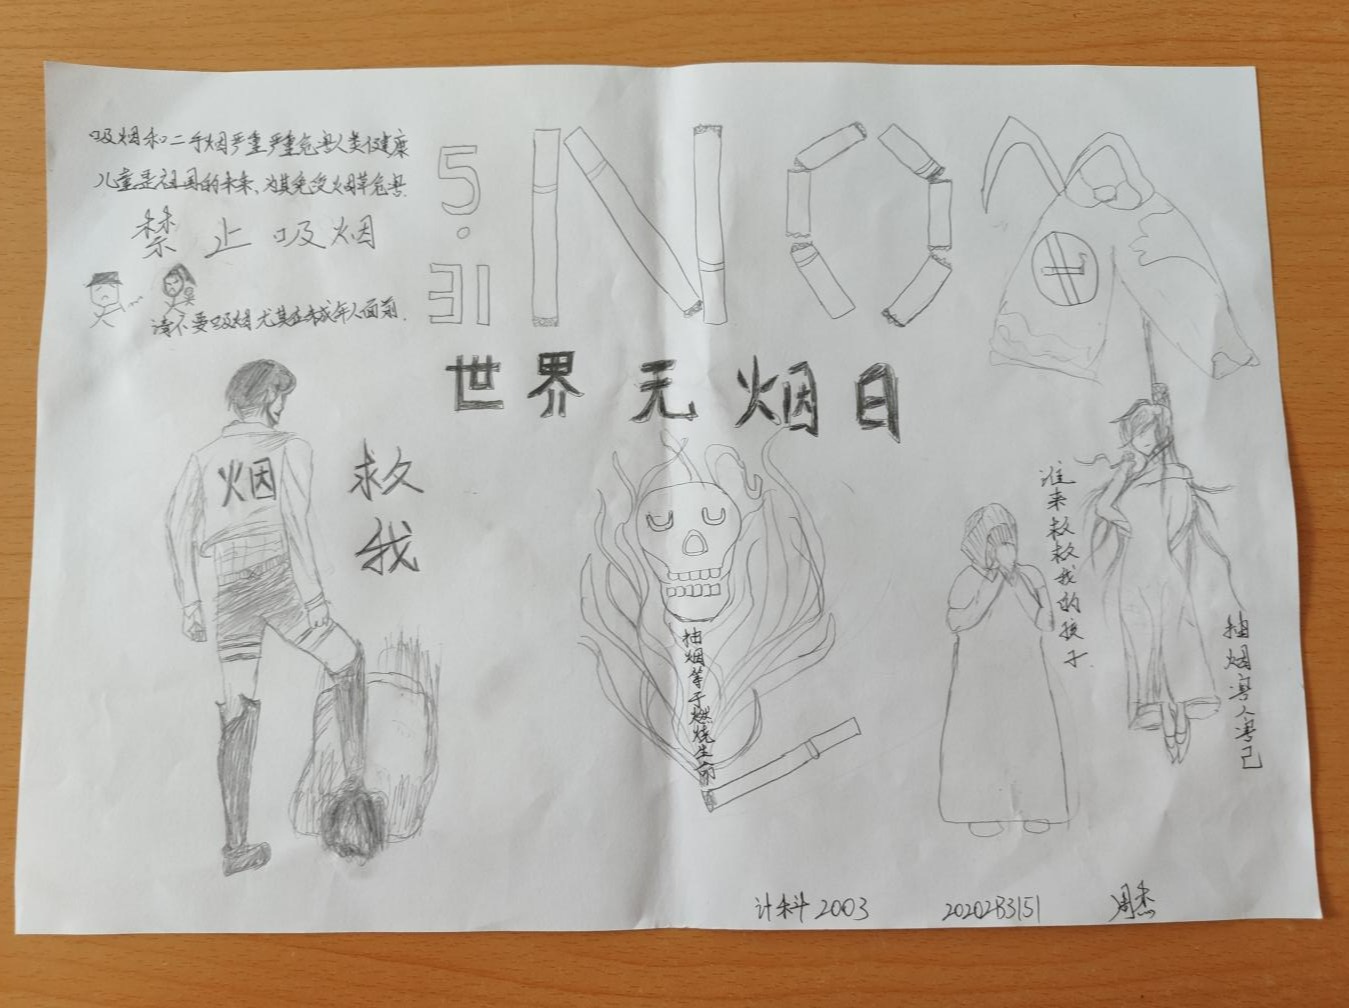 吸烟和二手烟严重严重危害人类健康
儿童是祖国的未来、为其免受烟草危害
禁止吸烟
请不要吸烟尤其在未成年人面前.
5.31
NO
世界无烟日
烟
救我
抽烟等于燃烧生命
谁来救救我的孩子
抽烟害人害己
计科2003
2020283151
周杰